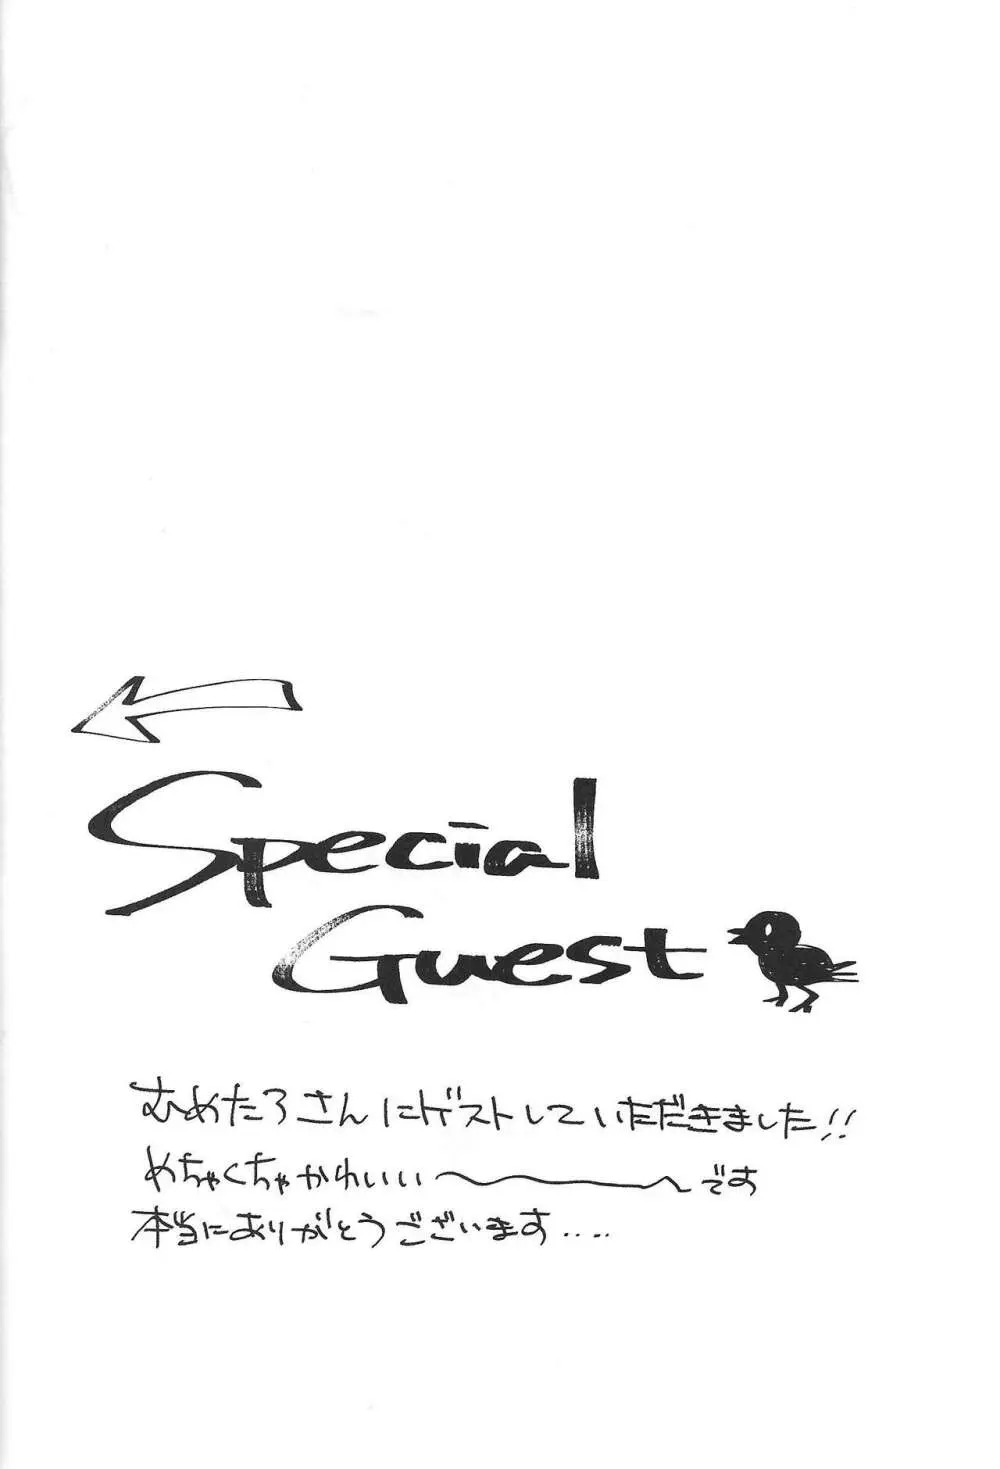 Special
Guest
むめたろさんにゲストしていただきました!!
めちゃくちゃかわいい〜〜です
本当にありがとうございます....